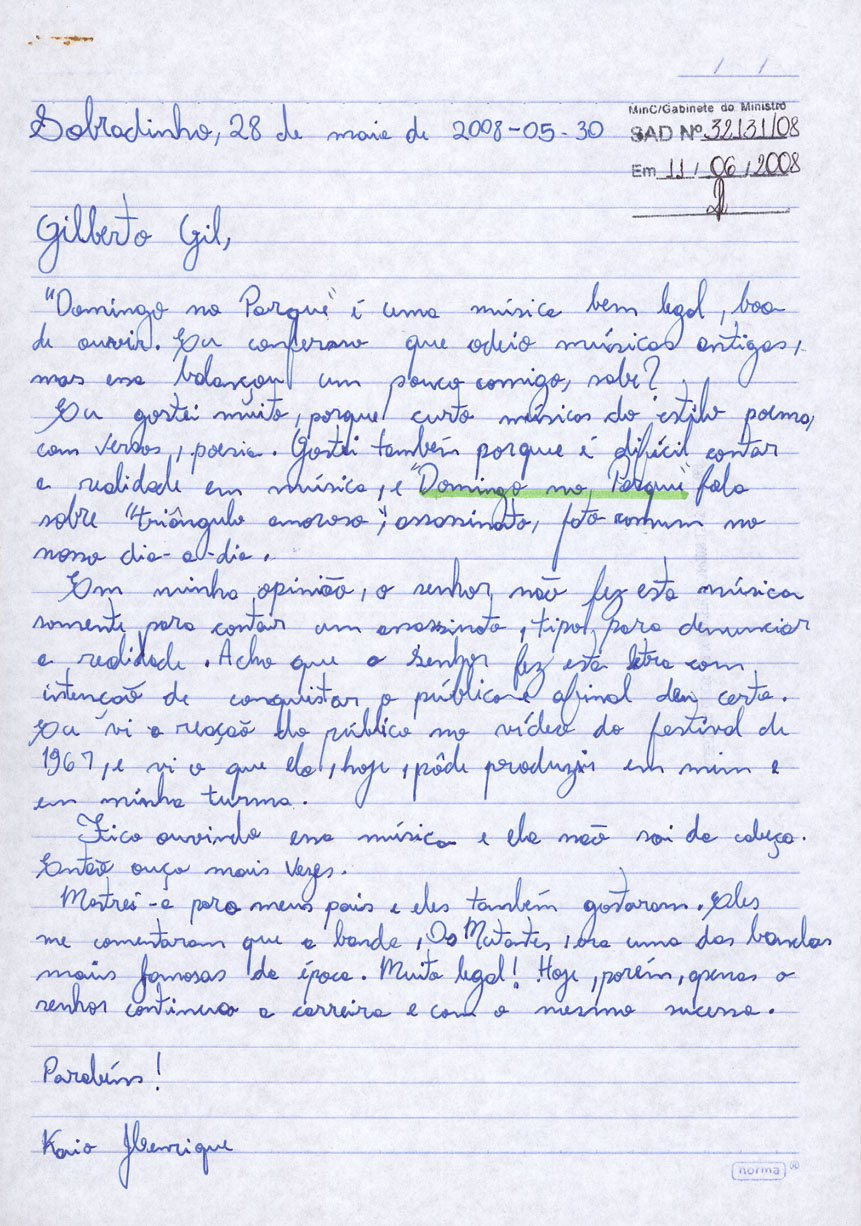 / /
MinC/Gabinete do Ministro
Sobradinho, 28 de maio de 2008-05-30
SAD Nº 32131/08
Em 11 / 06 / 2008
Gilberto Gil,
"Domingo no Parque" é uma música bem legal, boa
de ouvir. Eu confesso que odeio músicas antigas,
mas essa balançou um pouco comigo, sabe?
Eu gostei muito, porque curto músicas do estilo poema,
com versos, poesia. Gostei também porque é difícil contar
a realidade em música, e "Domingo no Parque" fala
sobre "triângulo amoroso", assassinato, fato comum no
nosso dia-a-dia.
Em minha opinião, o senhor não fez esta música
somente para contar um assassinato, tipo, para denunciar
a realidade. Acho que o senhor fez esta letra com
intenção de conquistar o público e afinal deu certo.
Eu vi a reação do público no vídeo do festival de
1967, e vi o que ela, hoje, pôde produzir em mim e
em minha turma.
Fico ouvindo essa música e ela não sai da cabeça.
Então ouço mais vezes.
Mostrei-a para meus pais e eles também gostaram. Eles
me comentaram que a banda, Os Mutantes, era uma das bandas
mais famosas da época. Muito legal! Hoje, porém, apenas o
senhor continua a carreira e com o mesmo sucesso.
Parabéns!
Kaio Henrique
norma ®